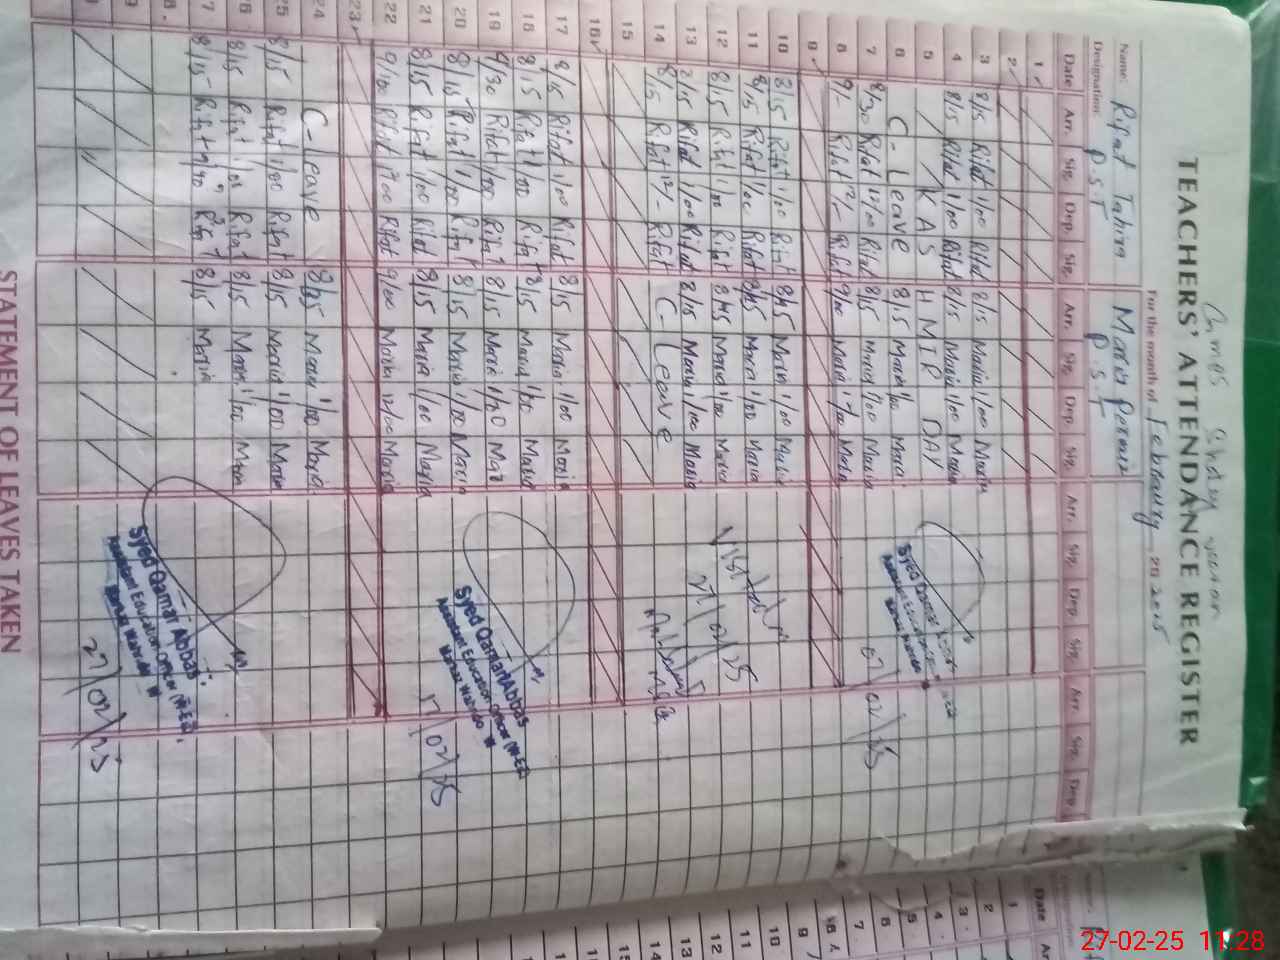 TEACHERS' ATTENDANCE REGISTER
For the month of February 2025
Name: Rifat Tahira Maria Perveen
Designation P.S.T P.S.T
Date Arr. Sig. Dep. Sig. Arr. Sig. Dep. Sig. Arr. Sig. Dep. Sig. Arr. Sig. Dep.
1
2
3 8/15 Rifat 1/00 Rifat 8/15 Maria 1/00 Maria
4 8/15 Rifat 1/00 Rifat 8/15 Maria 1/00 Maria
5 KASHMIR DAY
6 C-Leave 8/15 Maria 1/00 Maria
7 8/30 Rifat 12/00 Rifat 8/15 Maria 1/00 Maria
8 9/- Rifat 12/- Rifat 9/00 Maria 1/00 Maria
9
10 8/15 Rifat 1/00 Rifat 8/15 Maria 1/00 Maria
11 8/15 Rifat 1/00 Rifat 8/15 Maria 1/00 Maria
12 8/15 Rifat 1/00 Rifat 8/15 Maria 1/00 Maria
13 8/15 Rifat 1/00 Rifat 8/15 Maria 1/00 Maria
14 8/15 Rifat 12/- Rifat C-Leave
15
16
17 8/15 Rifat 1/00 Rifat 8/15 Maria 1/00 Maria
18 8/15 Rifat 1/00 Rifat 8/15 Maria 1/00 Maria
19 9/30 Rifat 1/00 Rifat 8/15 Maria 1/00 Maria
20 8/15 Rifat 1/00 Rifat 8/15 Maria 1/00 Maria
21 8/15 Rifat 1/00 Rifat 8/15 Maria 1/00 Maria
22 9/00 Rifat 1/00 Rifat 9/00 Maria 12/00 Maria
23
24 C-Leave 8/15 Maria 1/00 Maria
25 8/15 Rifat 1/00 Rifat 8/15 Maria 1/00 Maria
26 8/15 Rifat 1/00 Rifat 8/15 Maria 1/00 Maria
27 8/15 Rifat Rifat 8/15 Maria
Syed Qamar Abbas
07/02/25
Visited
Syed Qamar Abbas
Assistant Education Officer (M-EE)
17/02/25
Syed Qamar Abbas
Assistant Education Officer (M-EE)
27/02/25
STATEMENT OF LEAVES TAKEN
Date
1
2
3
4
5
6
7
8
9
10
11
12
13
14
15
27-02-25 11:28